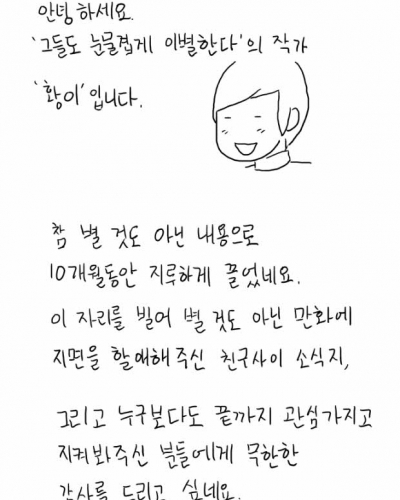 안녕하세요.
'그들도 눈물겹게 이별한다'의 작가
'황이'입니다.
참 별 것도 아닌 내용으로
10개월동안 지루하게 끌었네요.
이 자리를 빌어 별 것도 아닌 만화에
지면을 할애해주신 친구사이 소식지,
그리고 누구보다도 끝까지 관심가지고
지켜봐주신 분들에게 무한한
감사를 드리고 싶네요.